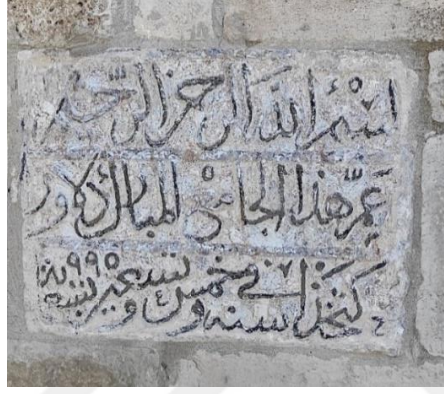 بسم الله الرحمن الرحيم
عمر هذا الجامع المبارك دلاور
كتخدا في سنه خمس وتسعين وتسعمايه ٩٩٥